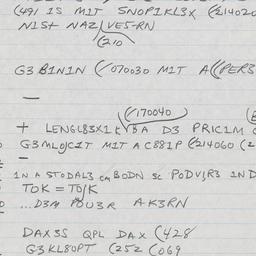 (491 IS MIT SNOPIKL3X (214020
NIST NAZLVE5-RN
(210
G3 BININ (070030 MIT A((PER3
—
(170040
+ LENGL83X1K BA D3 PRICIM
G3MLOJCIT MIT A C881P (214060 (2
—
IN A STODAL3 BODN SC PODVJR3 IND
TOK = TOJK
...D3M POU3R AK3RN
DAX3S QPL DAX (428
G3KL8OPT (252 (069